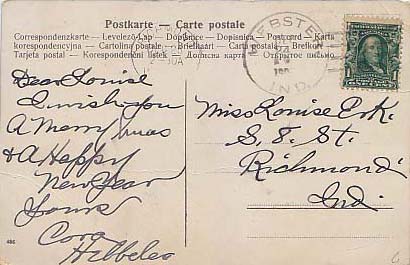 Postkarte — Carte postale
Correspondenzkarte — Levelező-Lap — Dopisnice — Dopisnica — Postcard — Karta
korespondencyjna — Cartolina postale — Briefkaart — Carta — Brefkort
Tarjeta postal — Korespondenční listek — Дописна карта — Открытое письмо
WEBSTER
IND.
Dear Louise
I wish you
A Merry Xmas
& A Happy
New Year
Yours
Cora
Miss Louise
S. 8. St.
Richmond
Ind.